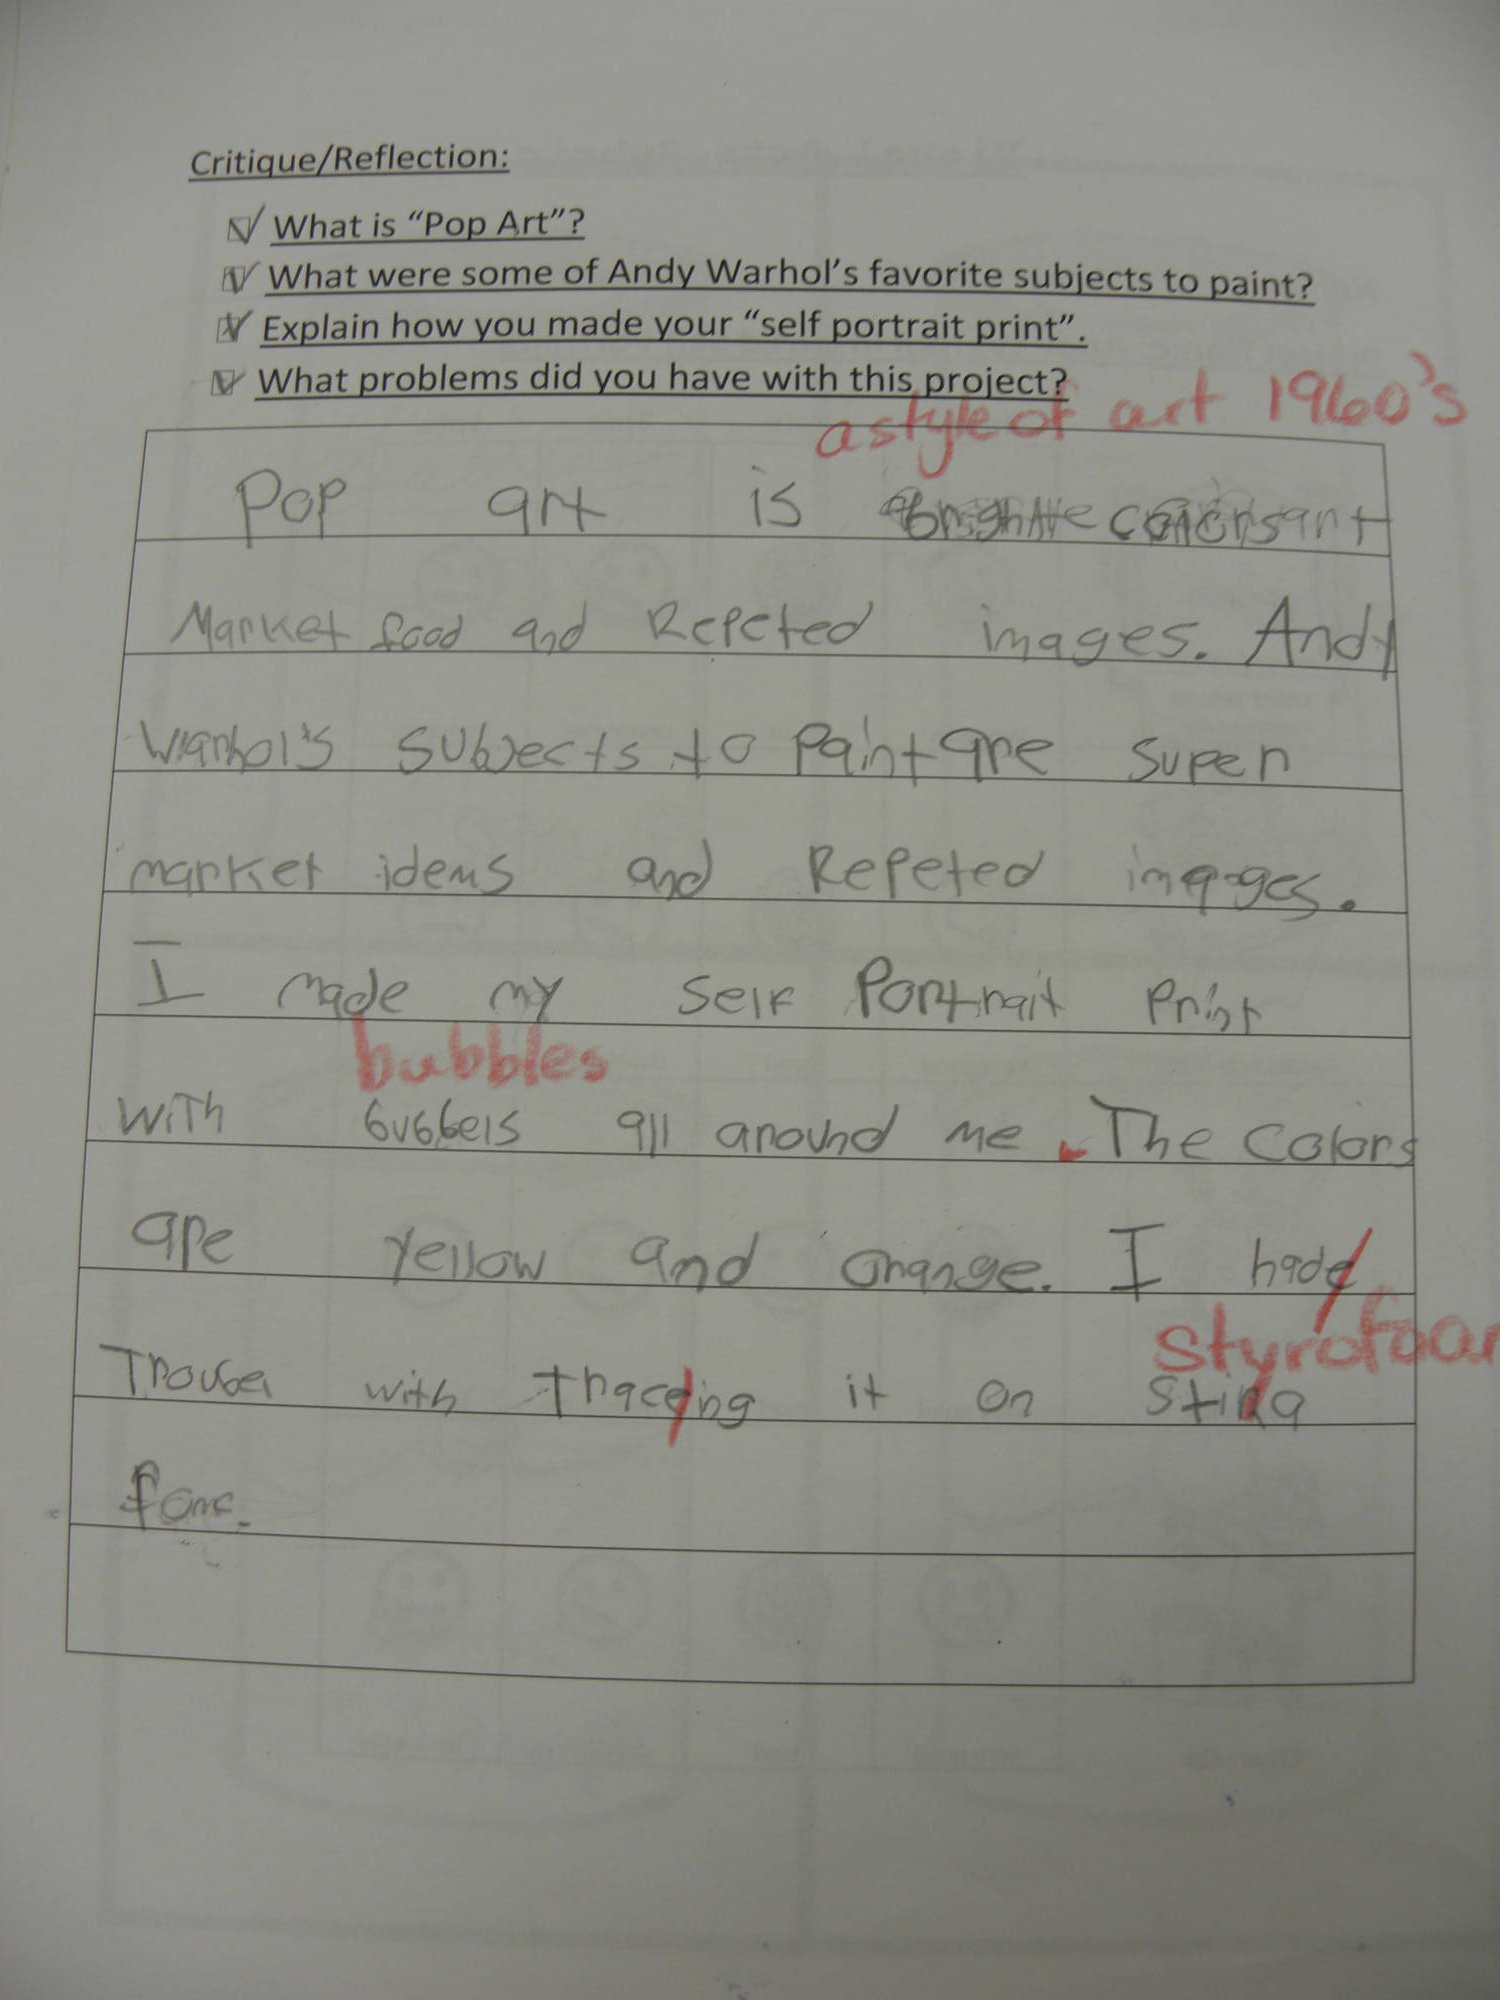 Critique/Reflection:
What is “Pop Art”?
What were some of Andy Warhol’s favorite subjects to paint?
Explain how you made your “self portrait print”.
What problems did you have with this project?
a style of art 1960's
Pop art is art
Market food and Repeted images. Andy
Warhol's subjects to paint are super
market idems and Repeted images.
I made my self Portrait print
bubbles
with bubbels all around me. The colors
are yellow and orange. I hade
styrofoam
Troubel with traceing it on
fome.